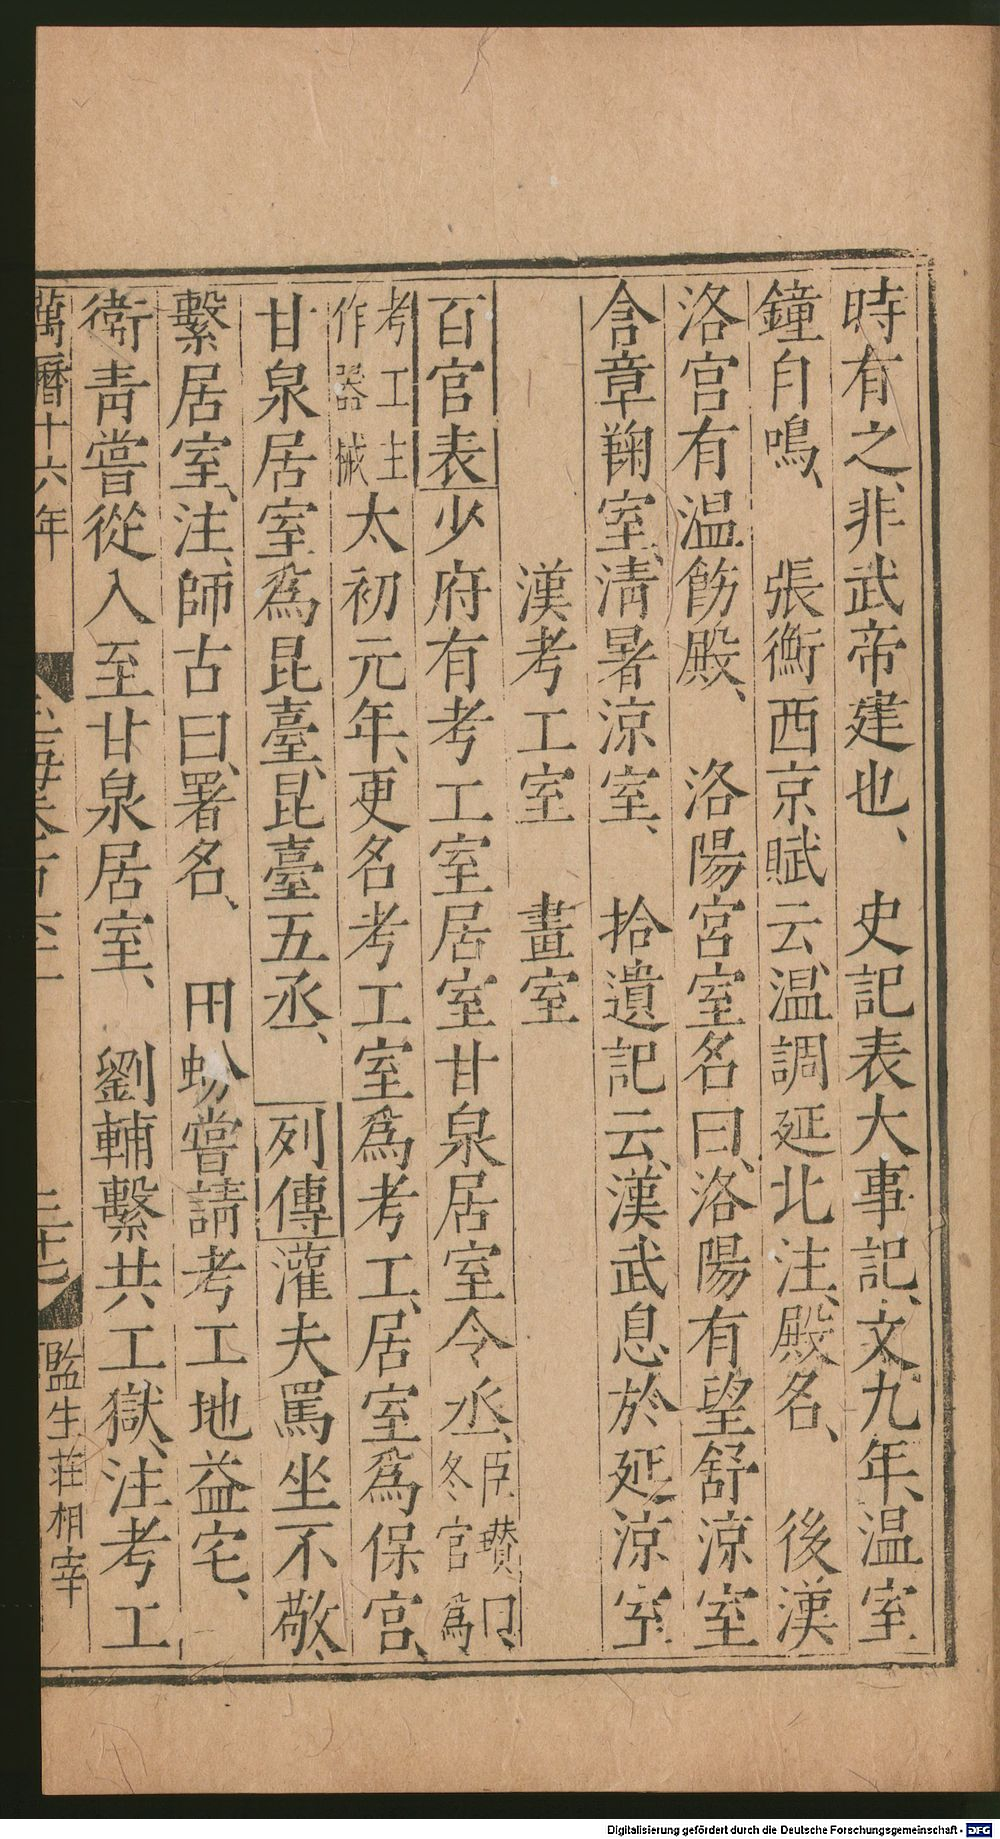 時有之、非武帝建也、　史記表大事記、文九年、温室
鐘自鳴、　張衡西京賦云、温調延北注、殿名、　後漢
洛宫有温飭殿、　洛陽宮室名曰、洛陽有望舒涼室
含章鞠室、清暑涼室、　拾遺記云、漢武息於延涼室
漢考工室　畫室
百官表少府有考工室居室甘泉居室令丞、臣瓚曰、冬官爲
考工主作器械太初元年、更名考工室爲考工、居室爲保宫、
甘泉居室爲昆臺、昆臺五丞、　列傳灌夫罵坐不敬、
繫居室、注、師古曰、署名、　田蚡嘗請考工地益宅、
衛青嘗從入至甘泉居室、　劉輔繫共工獄、注、考工
萬曆十六年　監生莊相宰
Digitalisierung gefördert durch die Deutsche Forschungsgemeinschaft - DFG